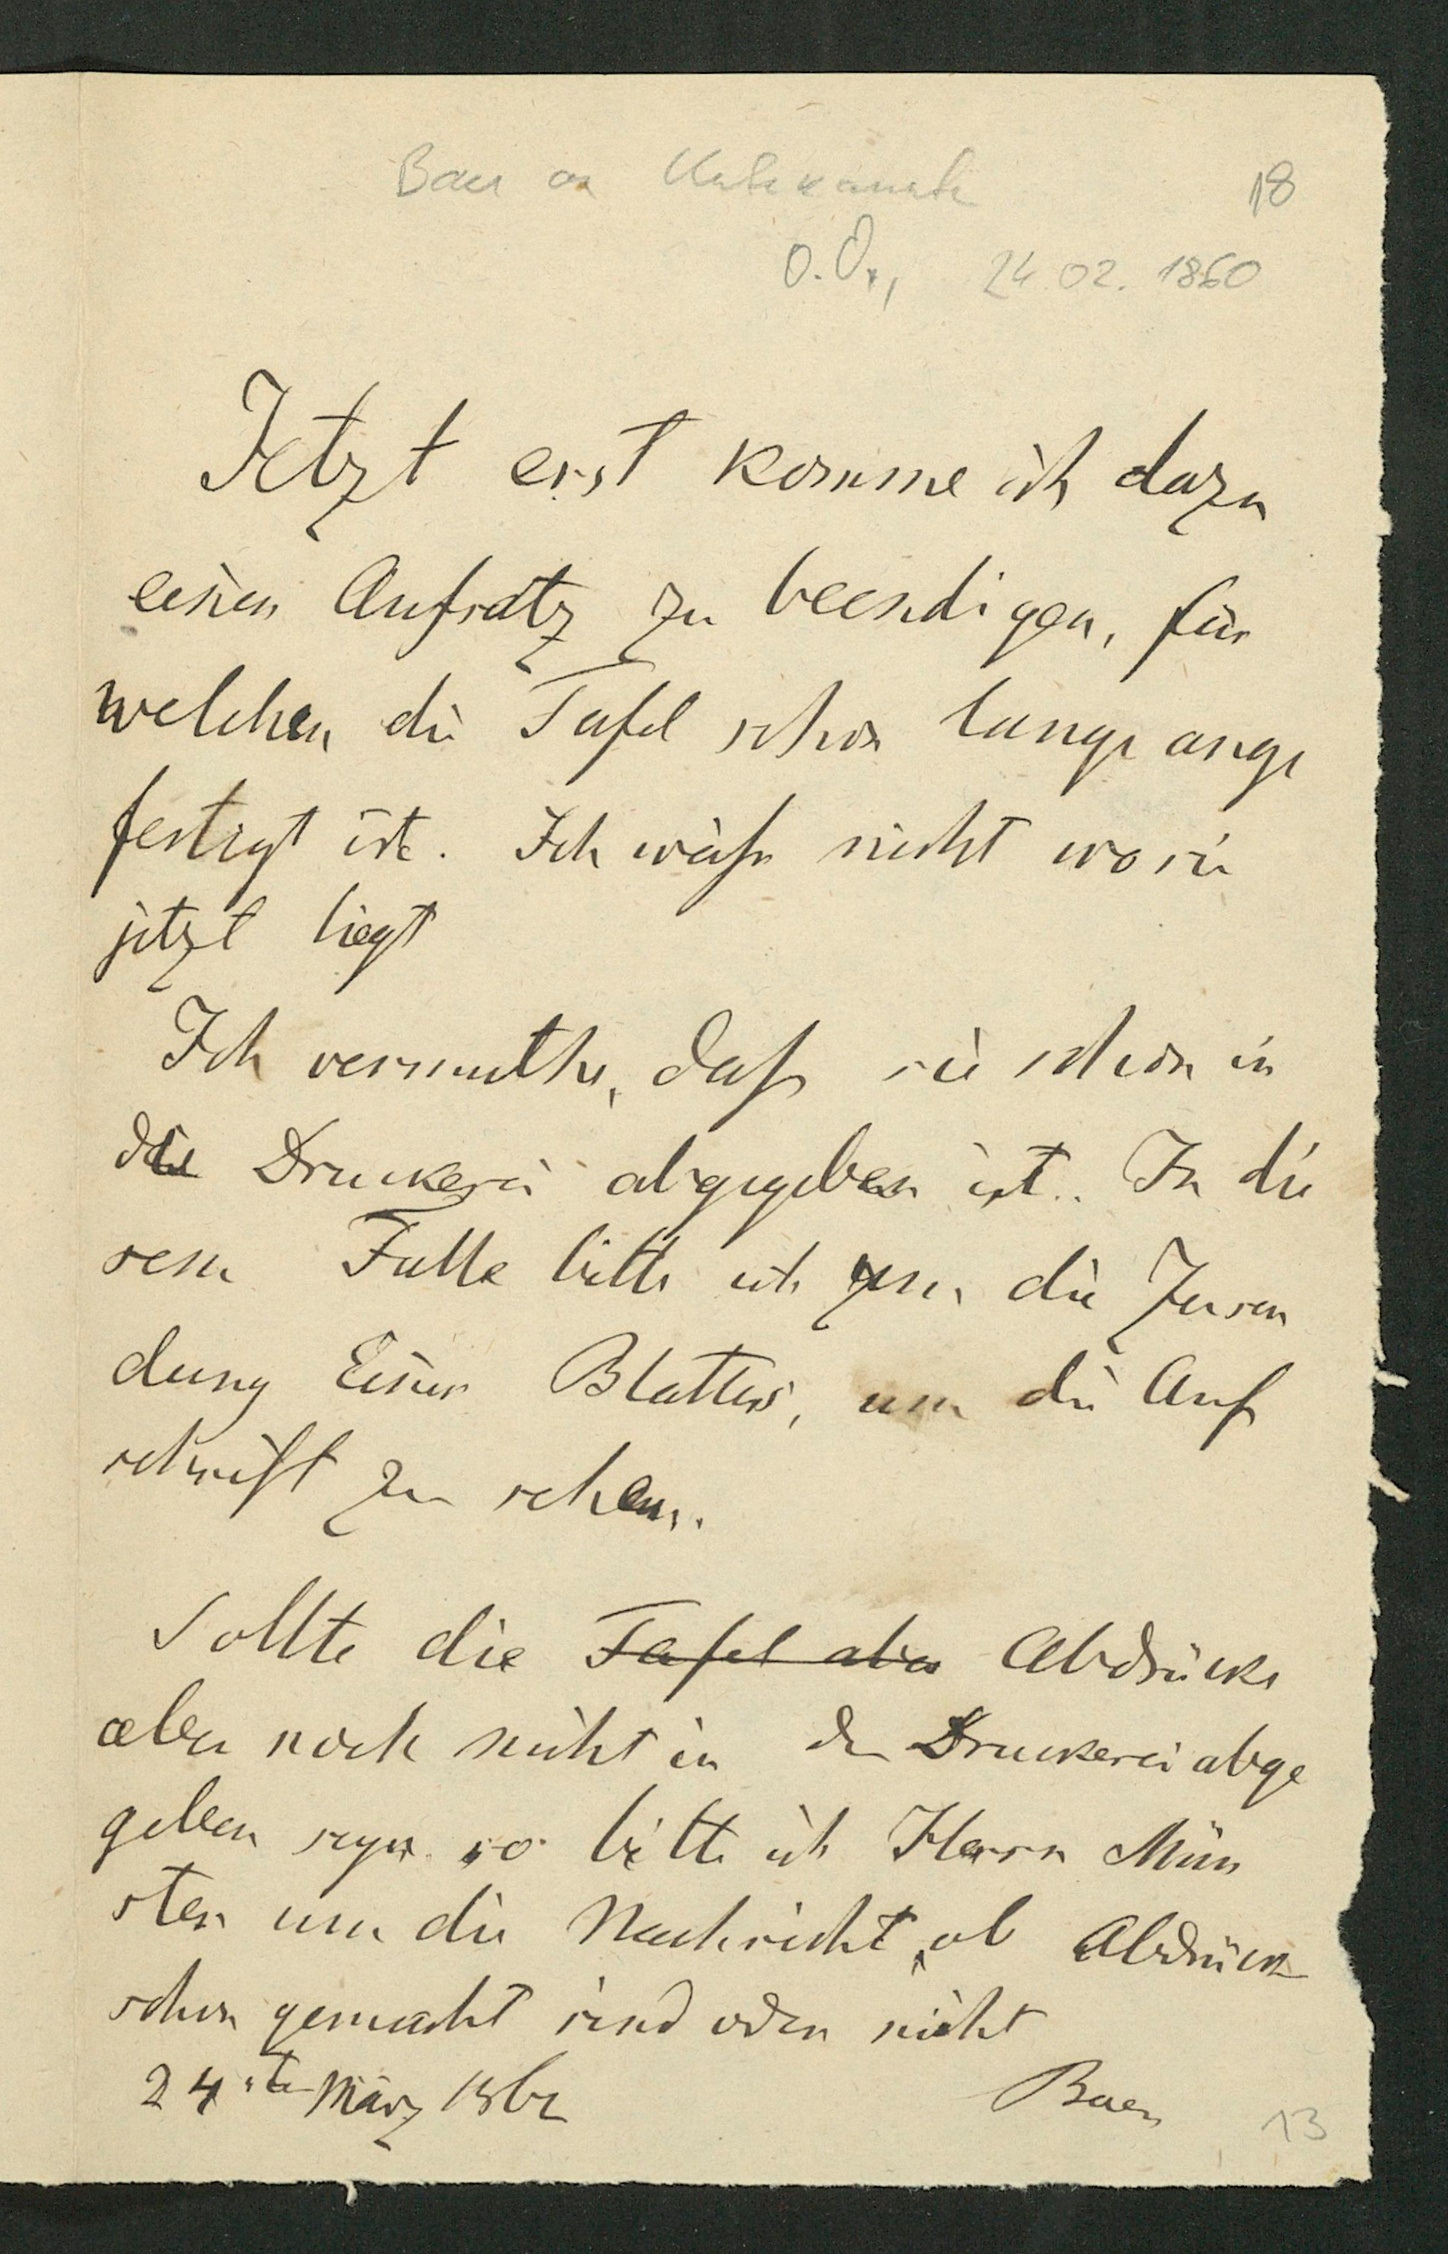 Baer an Unbekannt
18
O.O., 24.02.1860
Jetzt erst komme ich dazu
einen Aufsatz zu beendigen, für
welchen die Tafel schon lange ange
fertigt ist. Ich weiß nicht wo sie
jetzt liegt
Ich vermuthe, daß sie schon in
die Druckerei abgegeben ist. In die
sem Falle bitte ich um die Zusen
dung Eines Blattes, um die Auf
schrift zu sehen.
Sollte die Tafel aber Abdrücke
aber noch nicht in der Druckerei abge
geben seyn so bitte ich Herrn Mün
ster um die Nachricht, ob Abdrücke
schon gemacht sind oder nicht
24ste März Baer
13